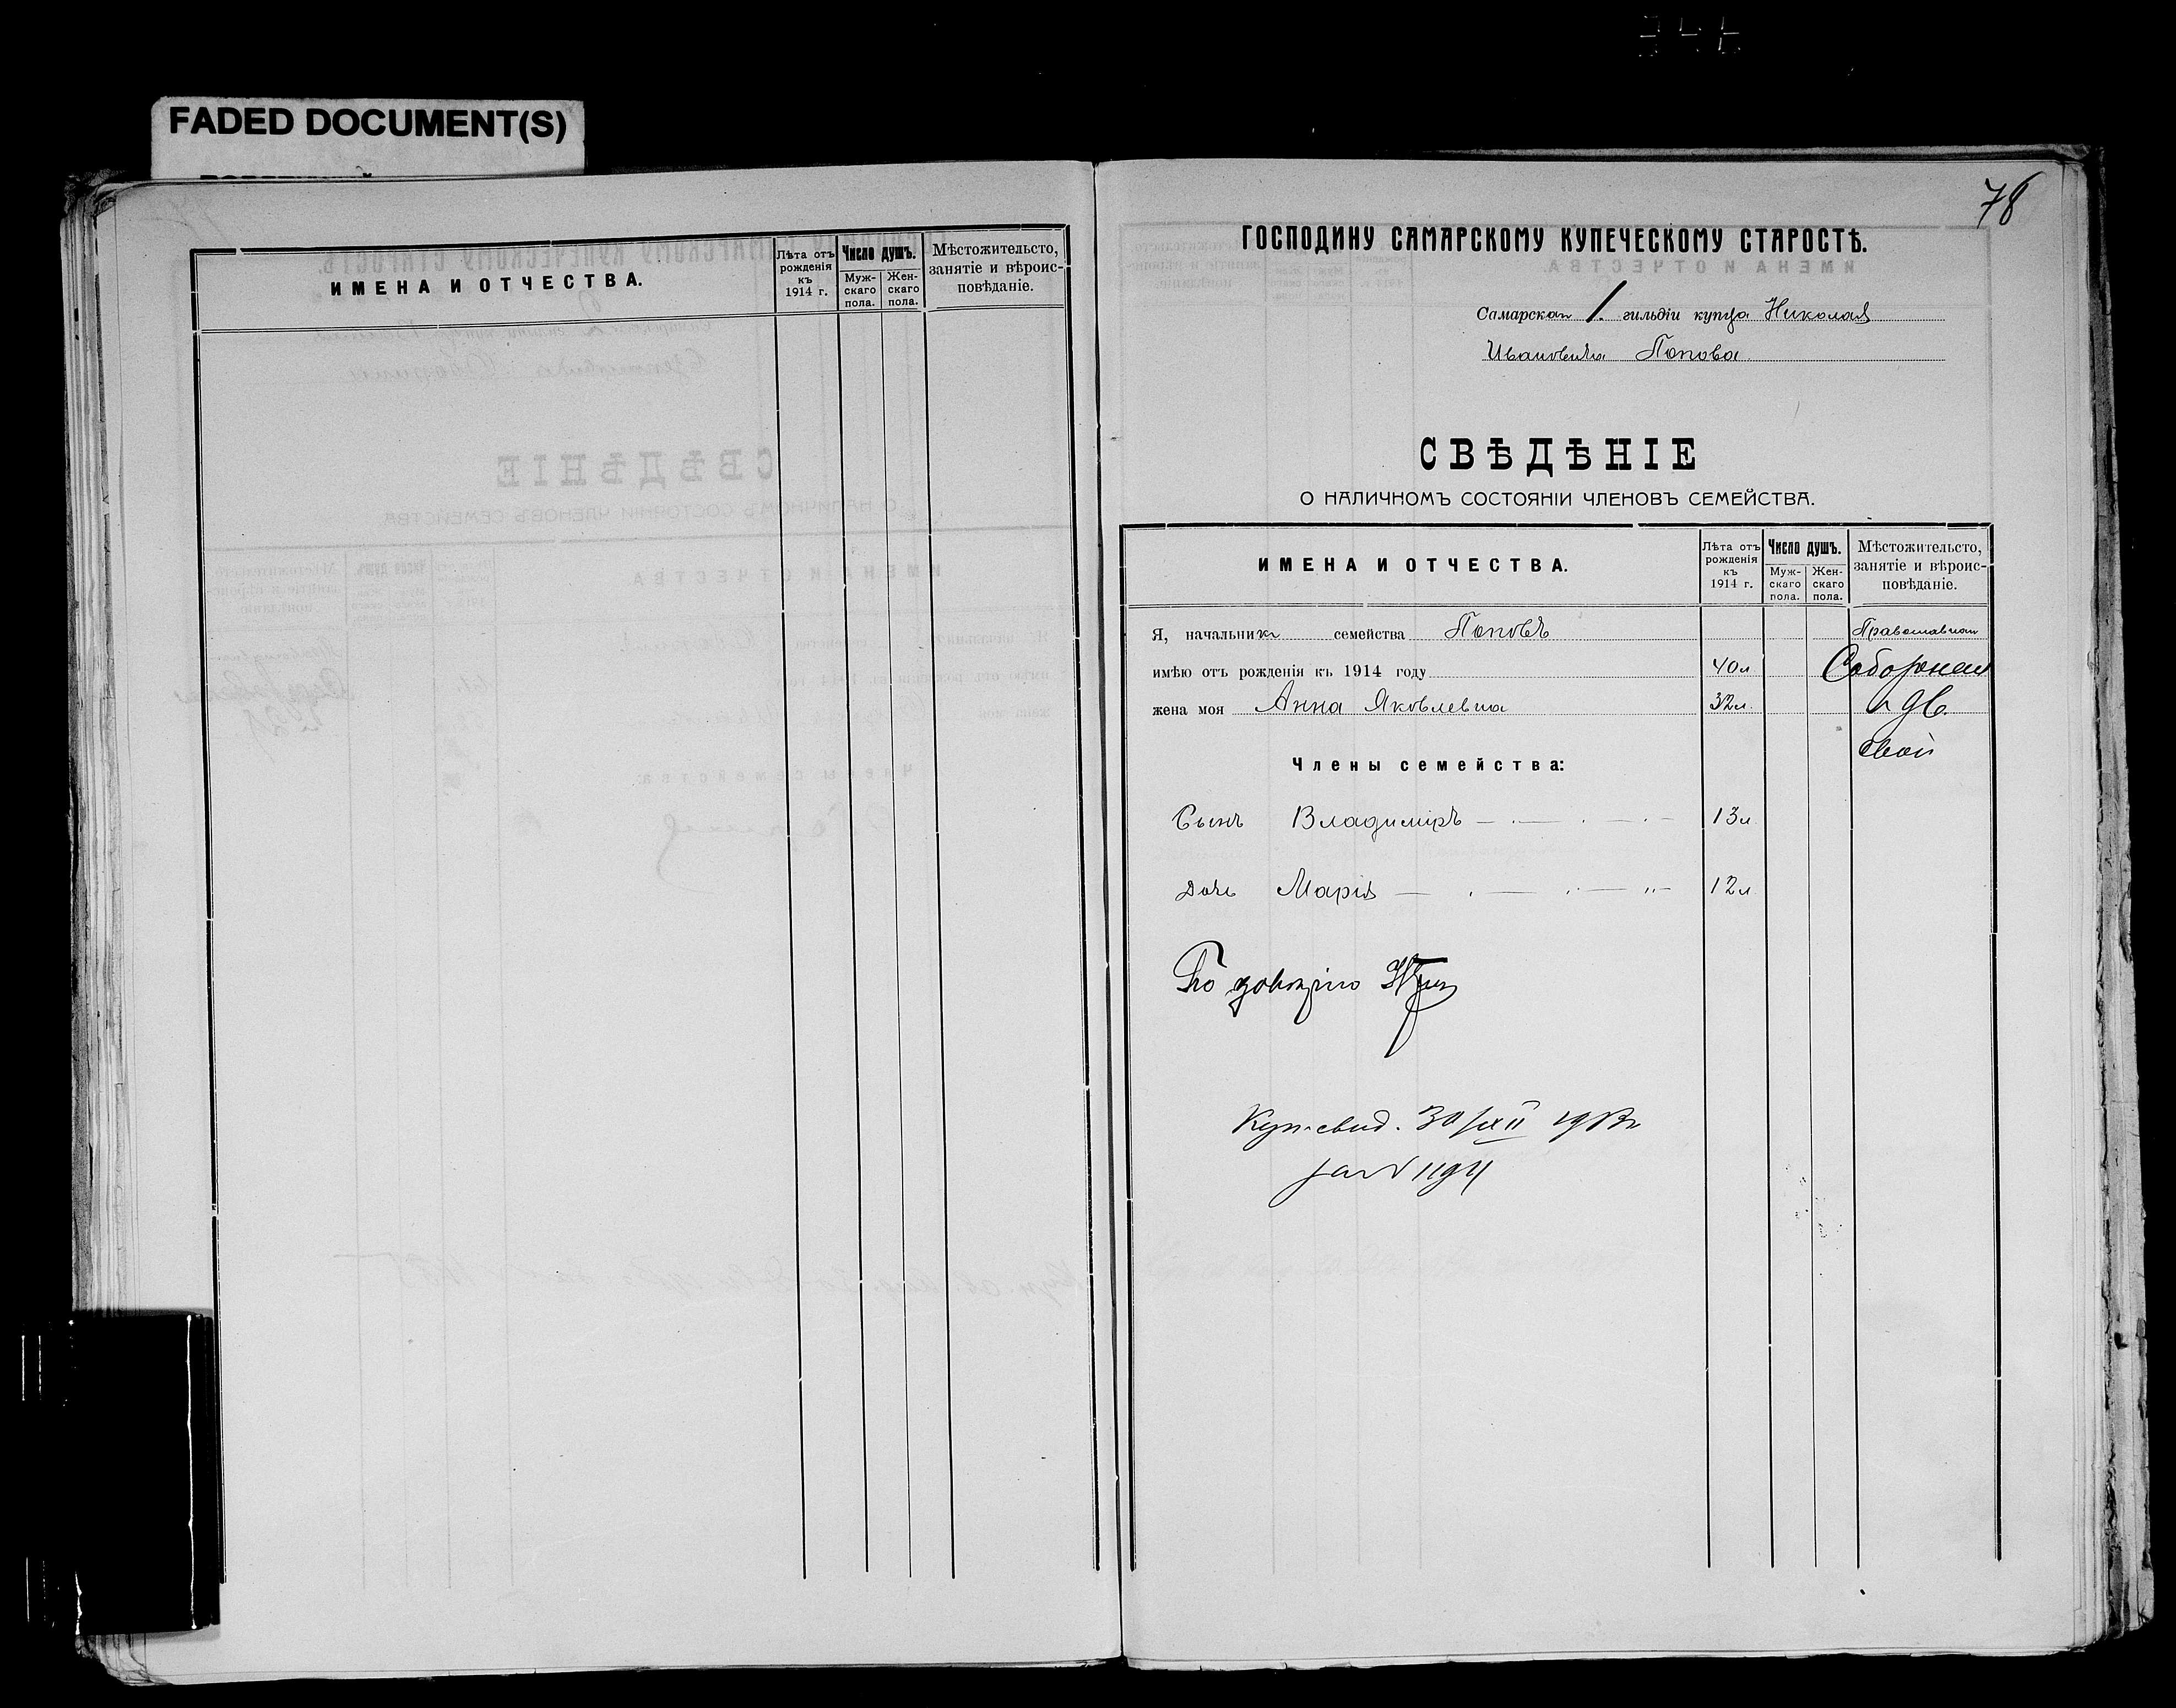 FADED DOCUMENT(S)
ИМЕНА И ОТЧЕСТВА.
Лѣта отъ рожденія къ 1914 г.
Число душъ.
Мужскаго пола.
Женскаго пола.
Мѣстожительсто, занятіе и вѣроисповѣданіе.
78
ГОСПОДИНУ САМАРСКОМУ КУПЕЧЕСКОМУ СТАРОСТѢ.
Самарскаго 1. гильдіи купца Николая
Ивановича Попова
СВѢДѢНІЕ
О НАЛИЧНОМЪ СОСТОЯНІИ ЧЛЕНОВЪ СЕМЕЙСТВА.
ИМЕНА И ОТЧЕСТВА.
Лѣта отъ рожденія къ 1914 г.
Число душъ.
Мужскаго пола.
Женскаго пола.
Мѣстожительсто, занятіе и вѣроисповѣданіе.
Я, начальник семейства Поповъ
имѣю отъ рожденія къ 1914 году 40 л Соборная
жена моя Анна Яковлевна 32 л. дв.
свой
Члены семейства:
Сынъ Владиміръ 13 л
Дочь Марія 12 л
По довѣрію
Куп. свид. 30/XII 1913 г
за № 1194